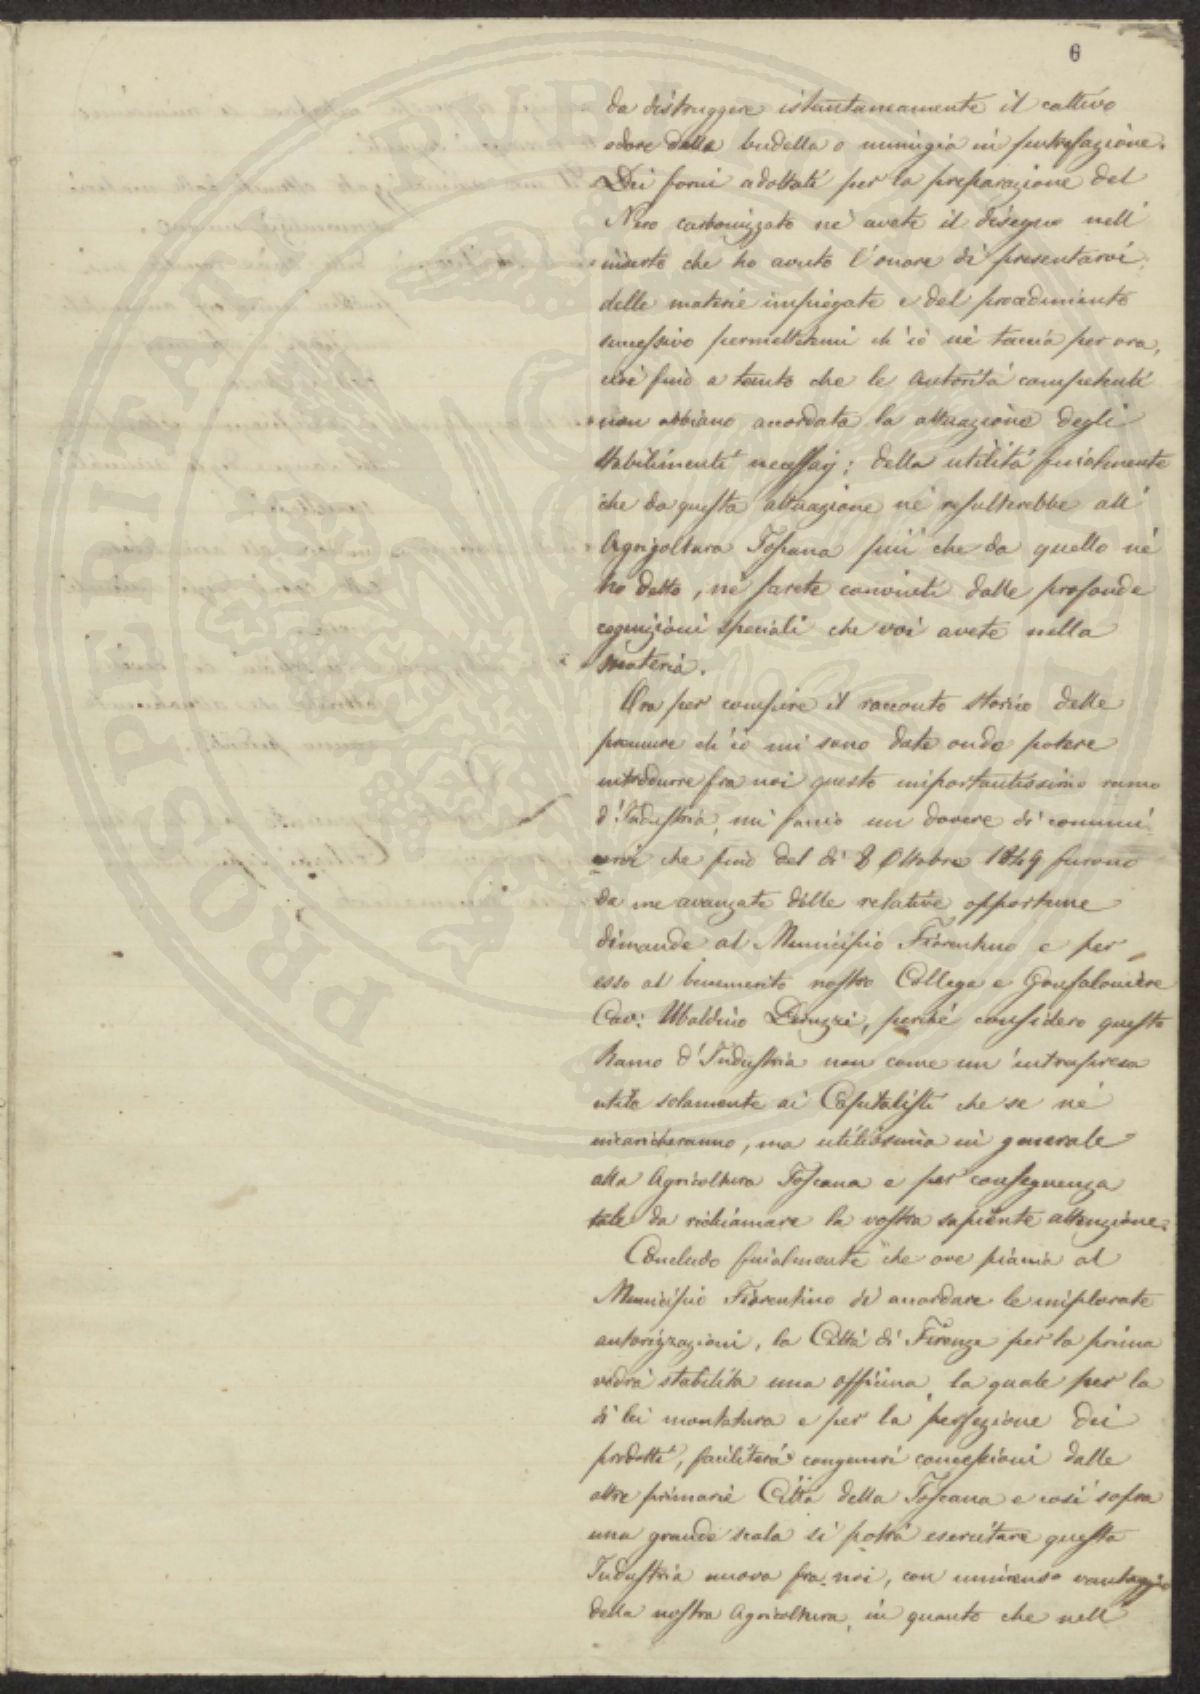 6
da distruggere istantaneamente il cattivo
odore delle budella o minugia in putrefazione.
Dei forni adottati per la preparazione del
Nero carbonizzato nè avete il disegno nell'
inserto che ho avuto l'onore di presentarvi;
delle materie impiegate e del procedimento
successivo permettetemi ch'io nè taccia per ora,
cioè fino a tanto che le Autorità competenti
non abbiano accordata la attuazione degli
Stabilimenti necessarj: della utilità finalmente
che da questa attuazione nè resulterebbe all'
Agricoltura Toscana più che da quello nè
ho detto, nè sarete convinti dalle profonde
cognizioni speciali che voi avete nella
materia.
Ora per compire il racconto storico delle
premure ch'io mi sono date onde potere
introdurre fra noi questo importantissimo ramo
d'Industria, mi faccio un dovere di communi
carvi che fino del dì 8 Ottobre 1849 furono
da me avanzate delle relative opportune
dimande al Municipio Fiorentino e per
esso al benemerito nostro Collega e Gonfaloniere
Cav: Ubaldino Peruzzi, perchè considero questo
Ramo d'Industria non come un'intrapresa
utile solamente ai Capitalisti che se nè
incaricheranno, ma utilissima in generale
alla Agricoltura Toscana e per conseguenza
tale da richiamare la vostra sapiente attenzione.
Concludo finalmente che ove piaccia al
Municipio Fiorentino di accordare le implorate
autorizzazioni, la Città di Firenze per la prima
vedrà stabilita una officina, la quale per la
di lei montatura e per la perfezione dei
prodotti, faciliterà congeneri concessioni dalle
altre primarie Città della Toscana e così sopra
una grande scala si potrà esercitare questa
Industria nuova fra noi, con immenso vantaggio
della nostra Agricoltura, in quanto che nell'
PROSPERITATI PUBLICAE